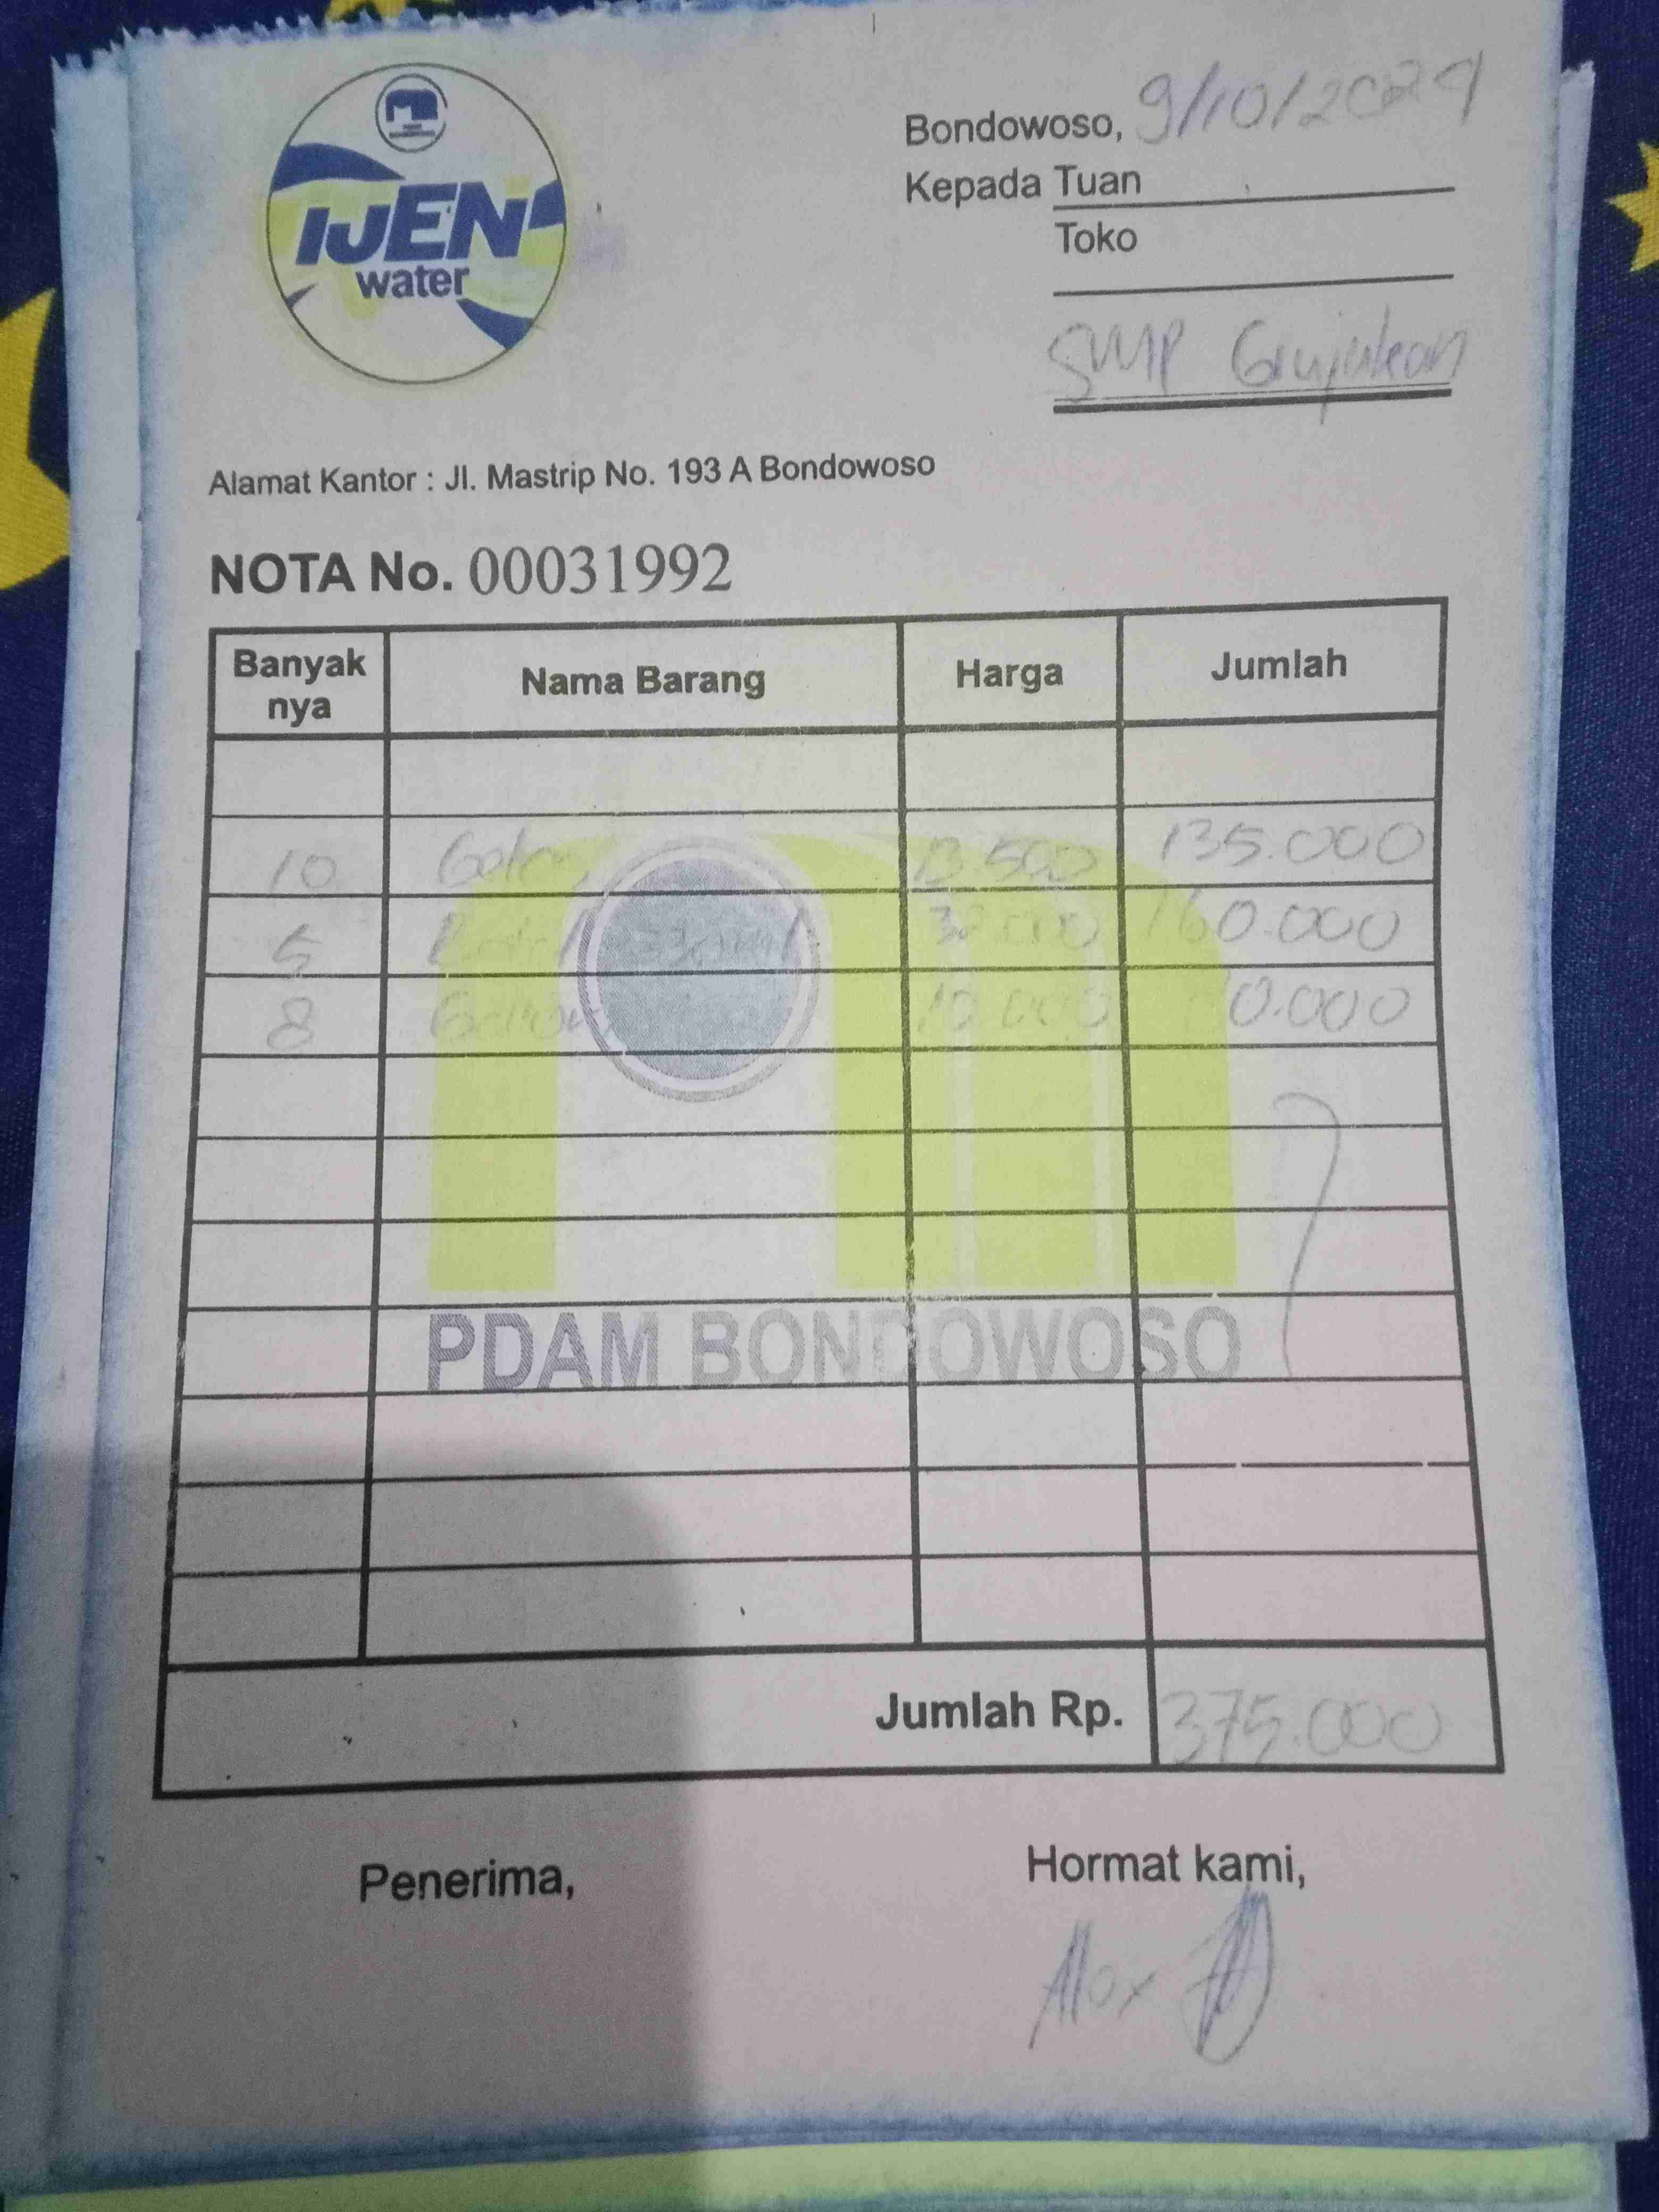 IJEN
water
Bondowoso, 9/10/2024
Kepada Tuan
Toko
SMP Grujukan
Alamat Kantor : Jl. Mastrip No. 193 A Bondowoso
NOTA No. 00031992
Banyak nya Nama Barang Harga Jumlah
10 13.500 135.000
5 Botol 330 ml 32.000 160.000
8 Galon 10.000 0.000
PDAM BONDOWOSO
Jumlah Rp. 375.000
Penerima, Hormat kami,
Alox